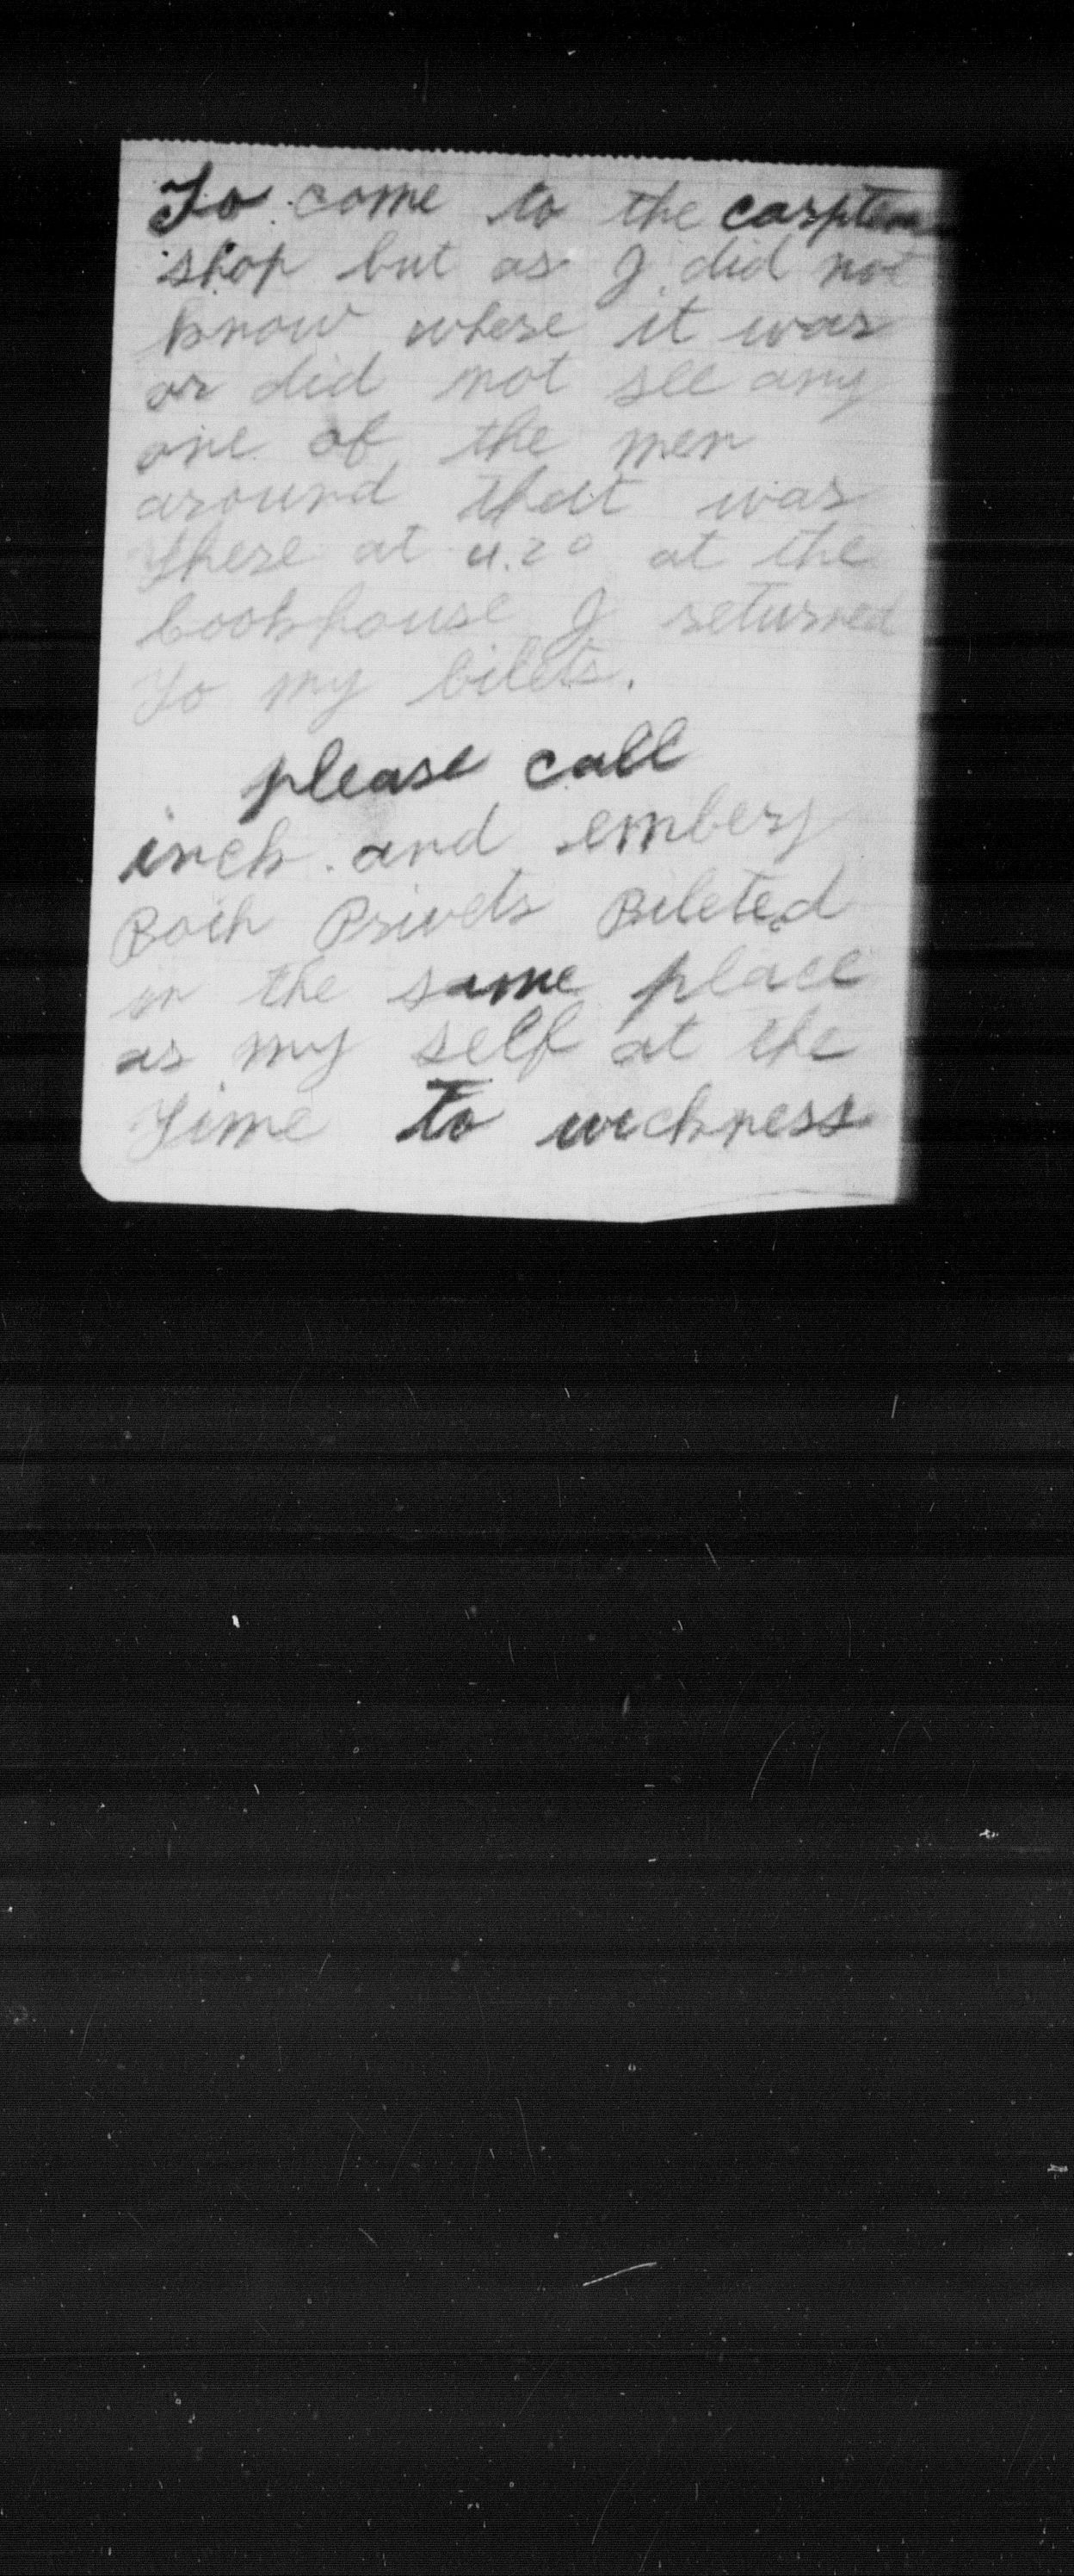 To come to the carpten
shop but as I did not
know where it was
or did not see any
one of the men
around that was
there at 4.20 at the
cookhouse I returned
To my bilets.
please call
inch and embery
Both Privets Bileted
in the same place
as my self at the
Time To wickness